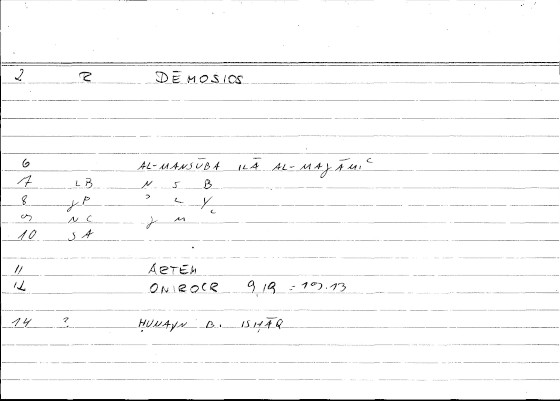 2 R DĒMOSIOS
6 AL-MANSŪBA ILĀ AL-MAJĀMIᶜ
7 LB N S B
8 JP ʾ L Y
9 NC J M ᶜ
10 SA
11 ARTEM
12 ONIROCR 9,19 =
14 ? ḤUNAYN B. ISḤĀQ